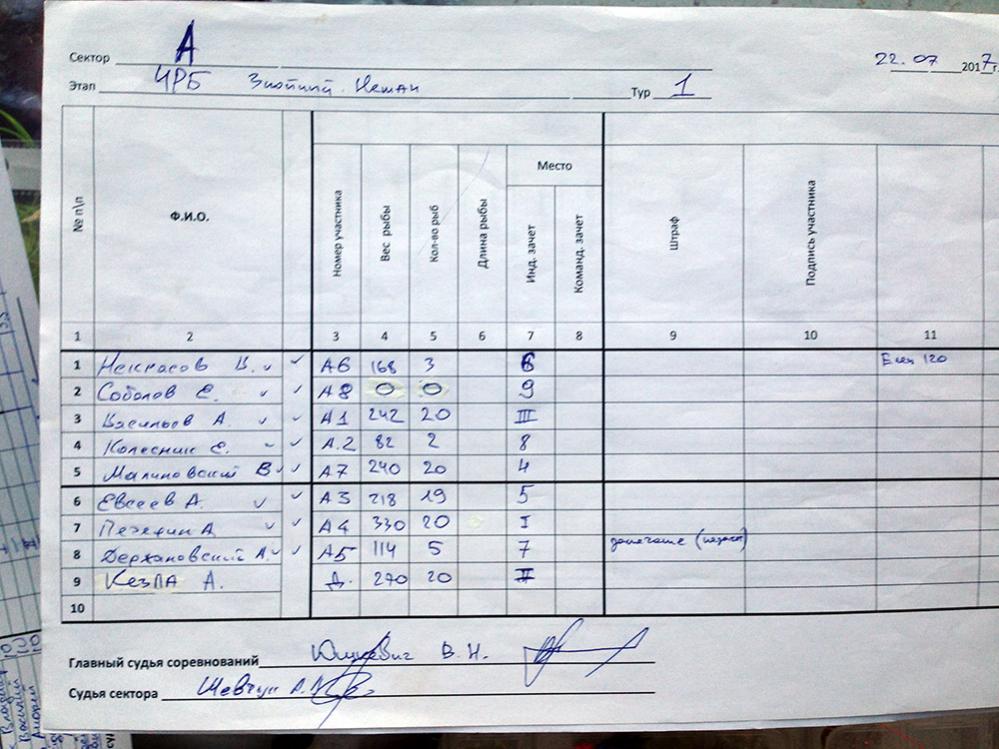 Сектор А
22.07 2017 г.
Этап ЧРБ Знойный Неман Тур 1
№ п\п Ф.И.О. Номер участника Вес рыбы Кол-во рыб Длина рыбы Место Инд. зачет Команд. зачет Штраф Подпись участника
1 2 3 4 5 6 7 8 9 10 11
1 Некрасов В. А6 168 3 6 120
2 Соболов Е. А8 0 0 9
3 Васильев А. А1 242 20 III
4 Колесник Е. А.2 82 2 8
5 Малиновский В А7 240 20 4
6 Евсеев А. А3 218 19 5
7 А А4 330 20 I
8 Держановский А. А5 114 5 7 замечание
9 Кезля А. Д. 270 20 II
10
Главный судья соревнований Юцкевич В.Н.
Судья сектора Шевчук